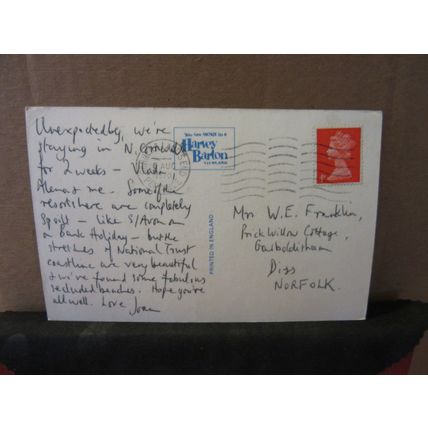 Unexpectedly, we're
staying in N. Cornwall
for 2 weeks -
& me. Some of the
resorts here are completely
spoilt - like S/Avon on
a Bank Holiday - but the
stretches of National Trust
coastline are very beautiful
& we've found some fabulous
secluded beaches. Hope you're
all well. Love
AUG
Harvey
Barton
PRINTED IN ENGLAND
Mrs W. E. Franklin,
Prick Willow Cottage,
Garboldisham
Diss
NORFOLK.